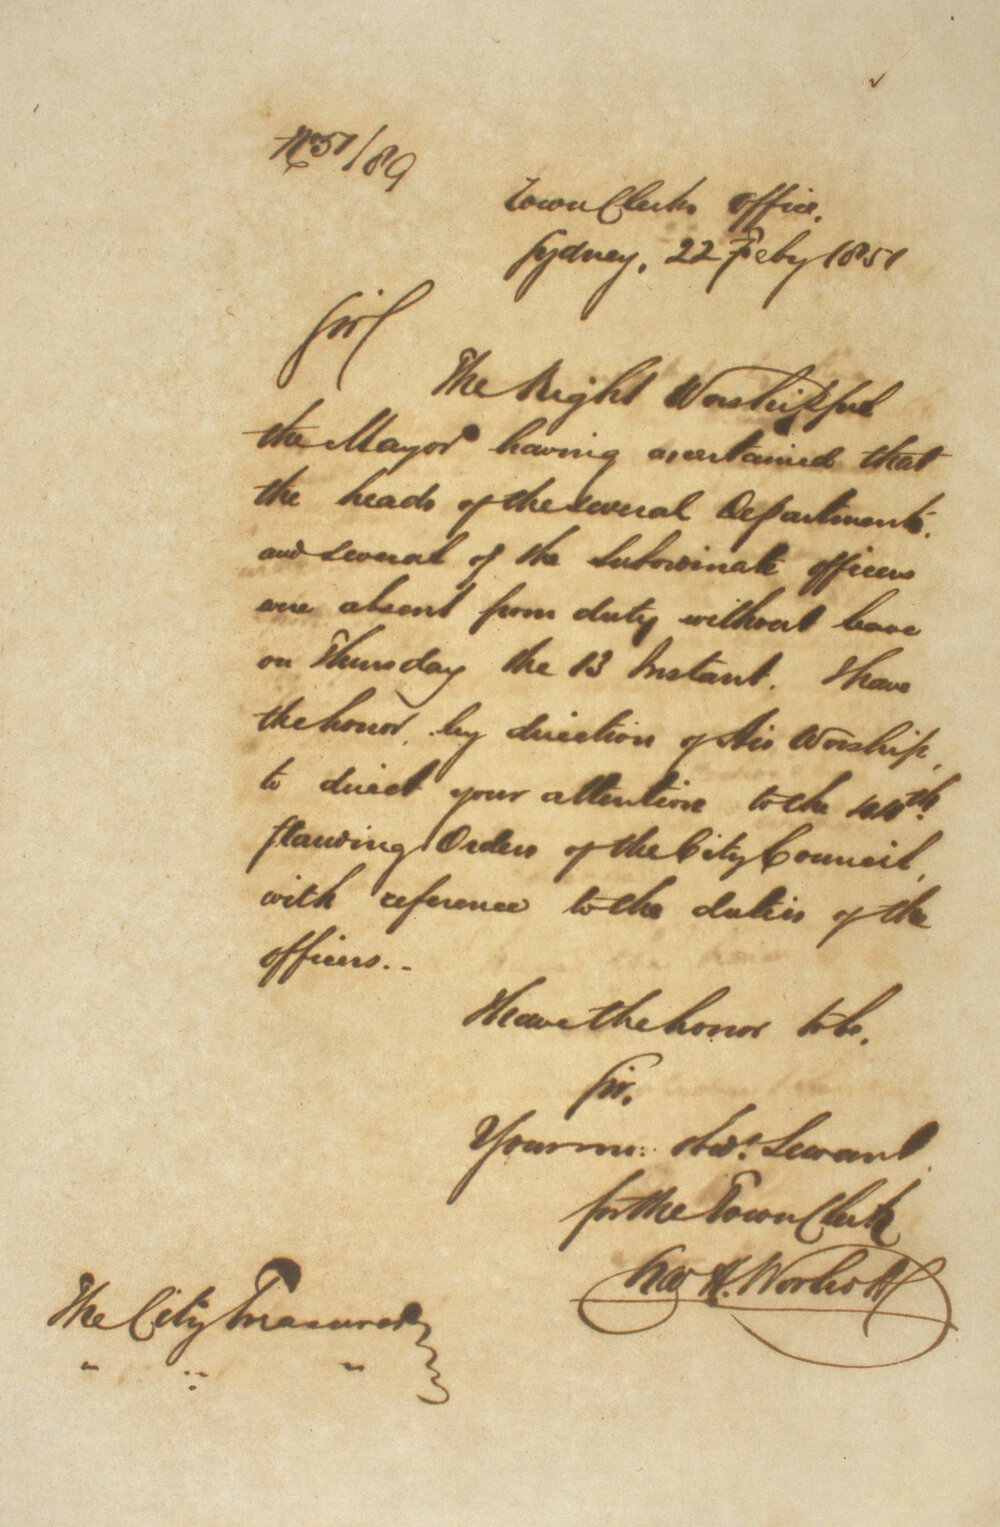 No 51/89
Town Clerks Office,
Sydney, 22 Feby 1851
Sir
The Right Worshipful
the Mayor having ascertained that
the heads of the several Departments,
and several of the Subordinate officers
were absent from duty without leave
on Thursday the 13 Instant. I have
the honor, by direction of His Worship,
to direct your attention to the
Standing Orders of the City Council,
with reference to the duties of the
officers..
I have the honor to be,
Sir,
Your mo: Obdt. Servant
for the Town Clerk
H.
The City Treasurer